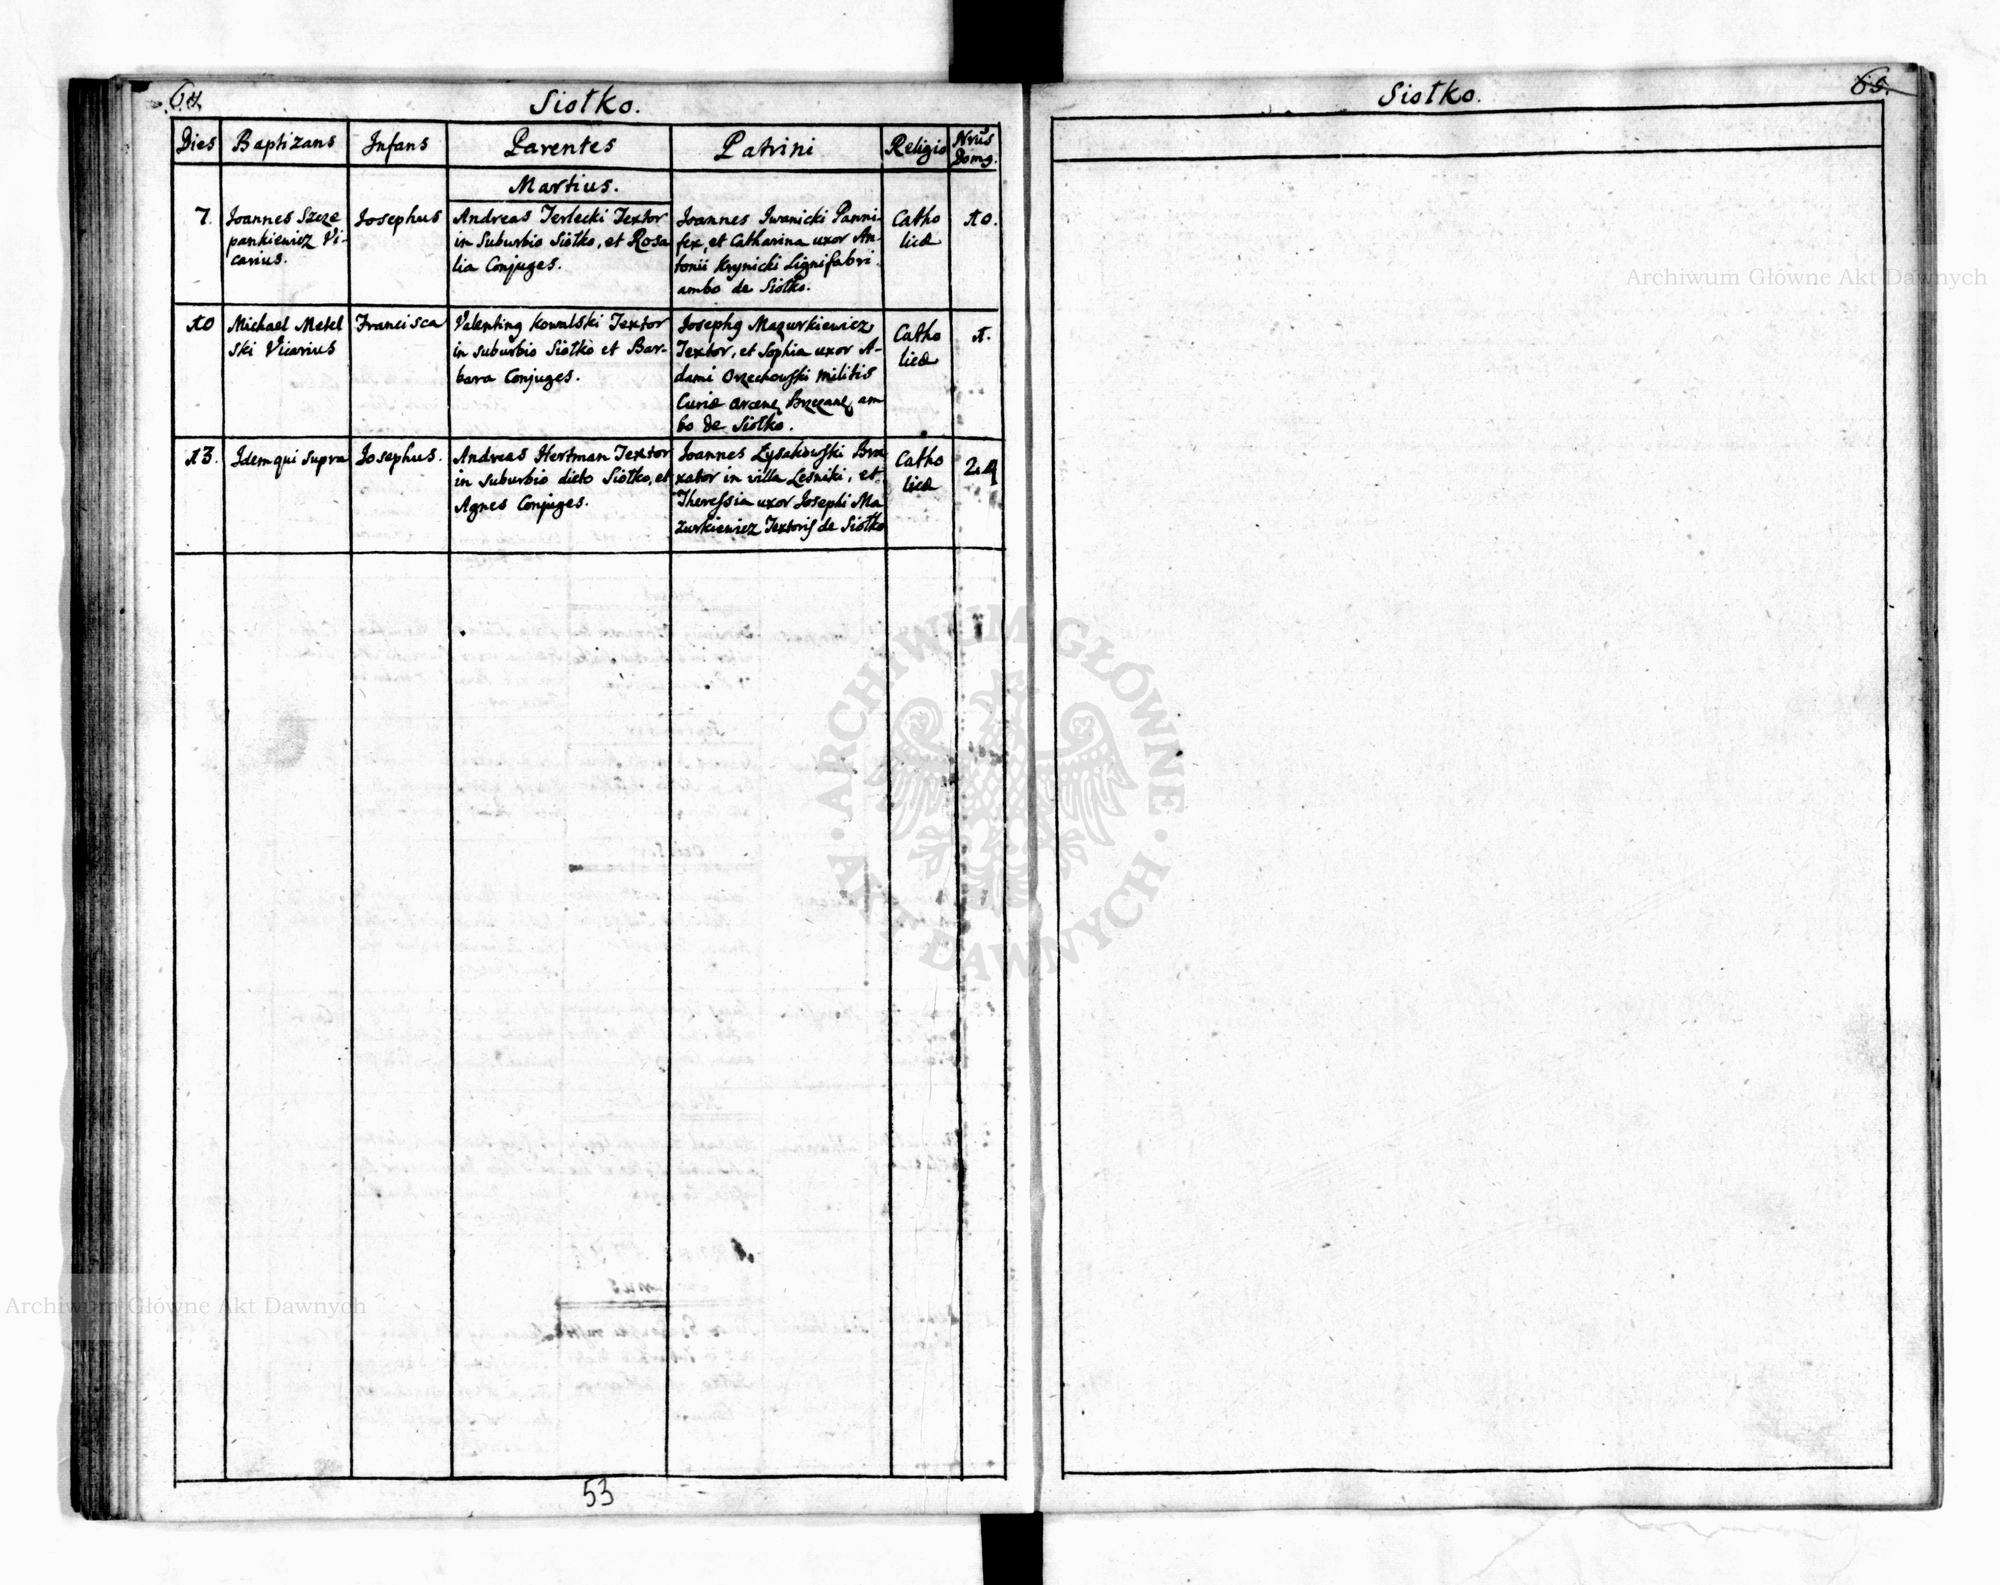 64.
Siołko.
Dies Baptizans Infans Parentes Patrini Religio Nrūs Domq.
Martius.
7.
Joannes Szcze
pankiewicz Vi-
carius.
Josephus
Andreas Terlecki Textor
in Suburbio Siołko, et Rosa
lia Conjuges.
Joannes Iwanicki Panni-
fex, et Catharina uxor An-
tonii Krynicki Lignifabri
ambo de Siołko.
Catho
licæ
10.
10
Michael Metel
ski Vicarius
Francisca
Valentinq Kowalski Textor
in suburbio Siołko et Bar-
bara Conjuges.
Josephq Mazurkiewicz
Textor, et Sophia uxor A-
dami Orzechowski militis
Curiæ Brzezanę am
bo de Siołko.
Catho
licæ
1.
13.
Idem qui supra
Josephus.
Andreas Hertman Textor
in Suburbio dicto Siołko, et
Agnes Conjuges.
Joannes Łysakowski Bra
xator in villa Leśniki, et
Theressia uxor Josephi Ma
zurkiewicz Textoris de Siołko
Catho
licæ
24
53
Siołko.
65.
Archiwum Główne Akt Dawnych
ARCHIWUM GŁÓWNE
AKT DAWNYCH
Archiwum Główne Akt Dawnych